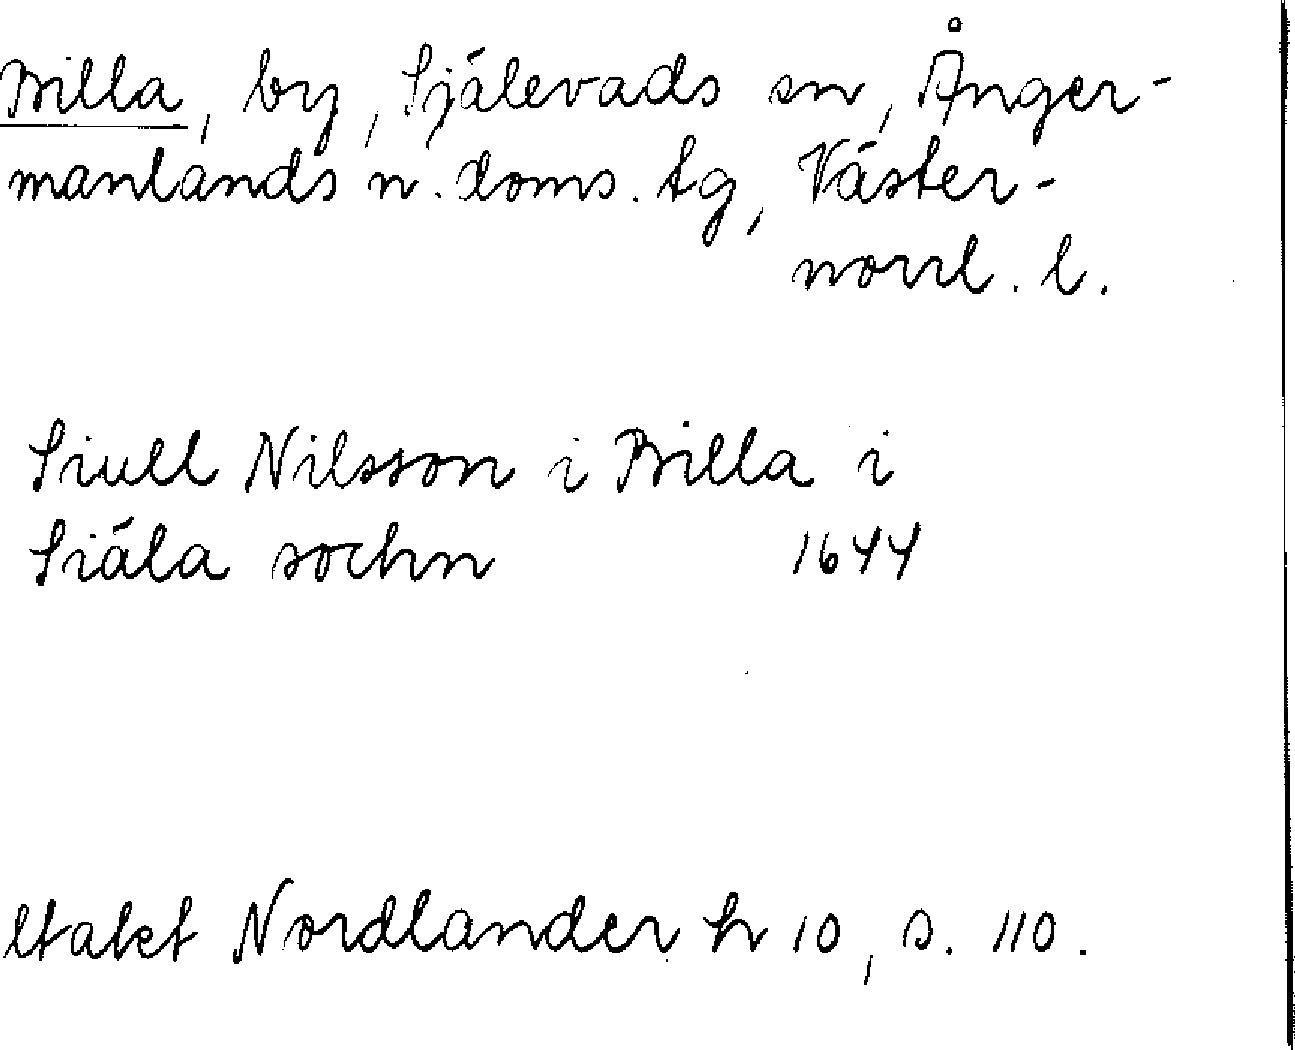 Billa, by, Själevads sn, Ånger-
manlands n. doms. tg, Väster-
norrl. l.
Siull Nilsson i Billa i
Siäla sochn 1644
Utakt Nordlander h 10, s. 110.